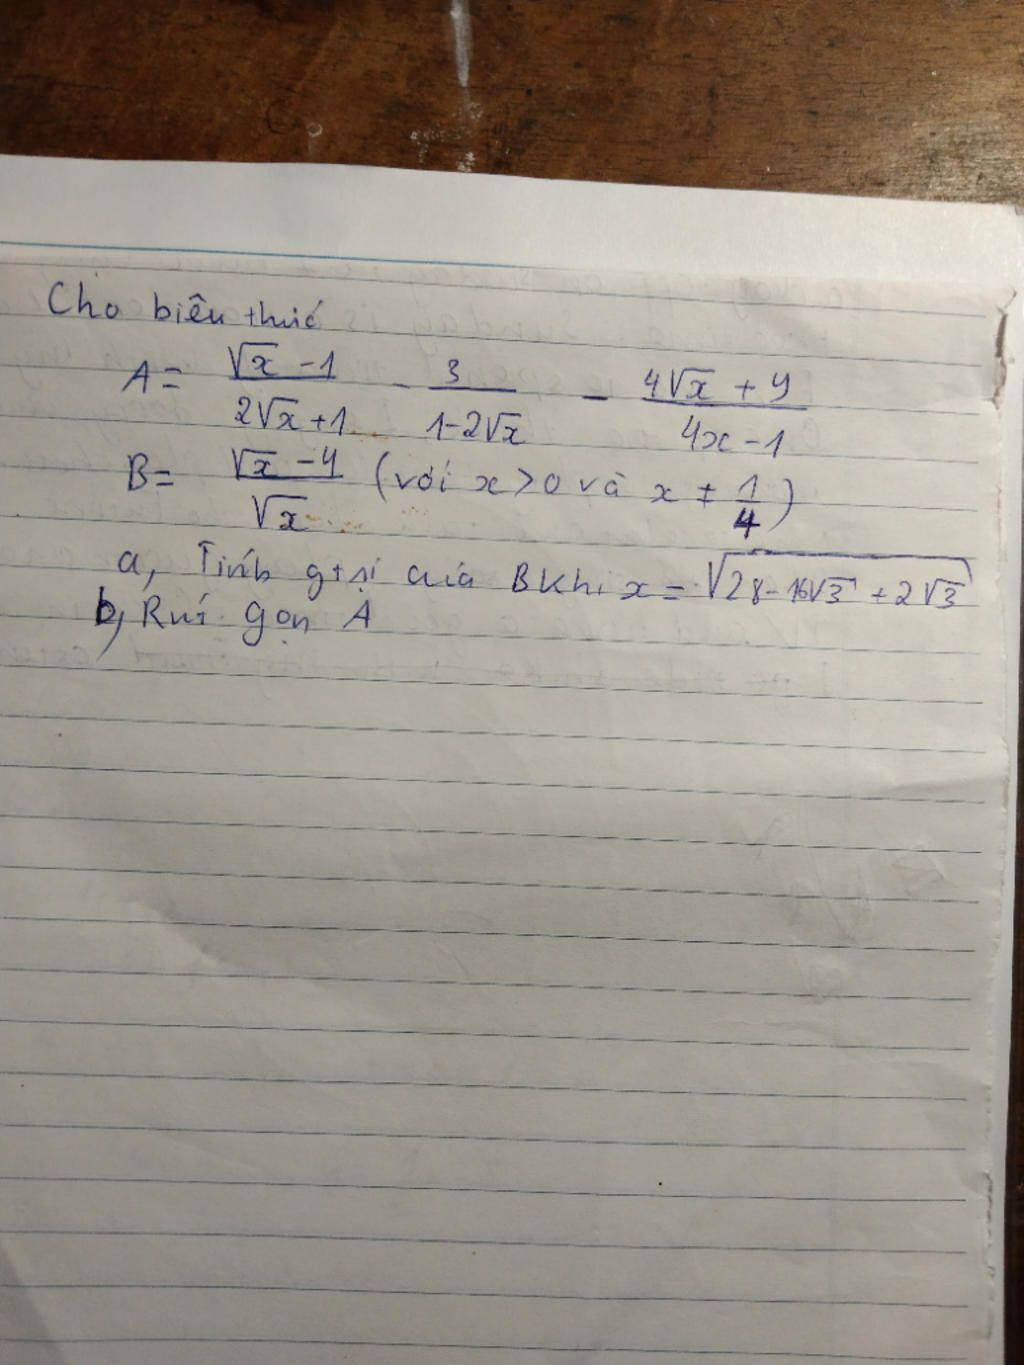 Cho biêu thức
A = (√x - 1)/(2√x + 1) - 3/(1 - 2√x) - (4√x + 4)/(4x - 1)
B = (√x - 4)/√x (với x > 0 và x ≠ 1/4)
a, Tính gtrị của B khi x = √(28 - 16√3 + 2√3)
b, Rút gọn A